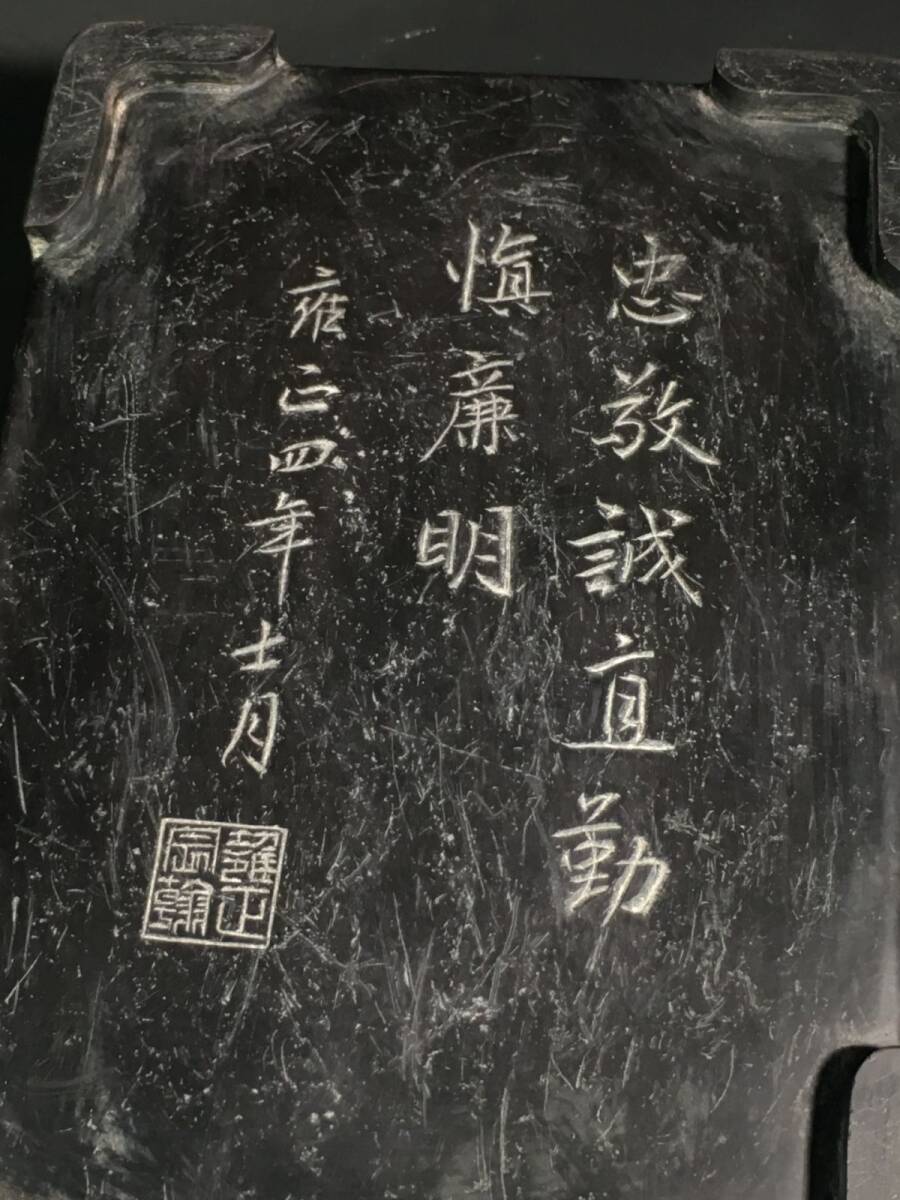 忠敬誠直勤
慎廉明
雍正四年十一月
雍正宸翰